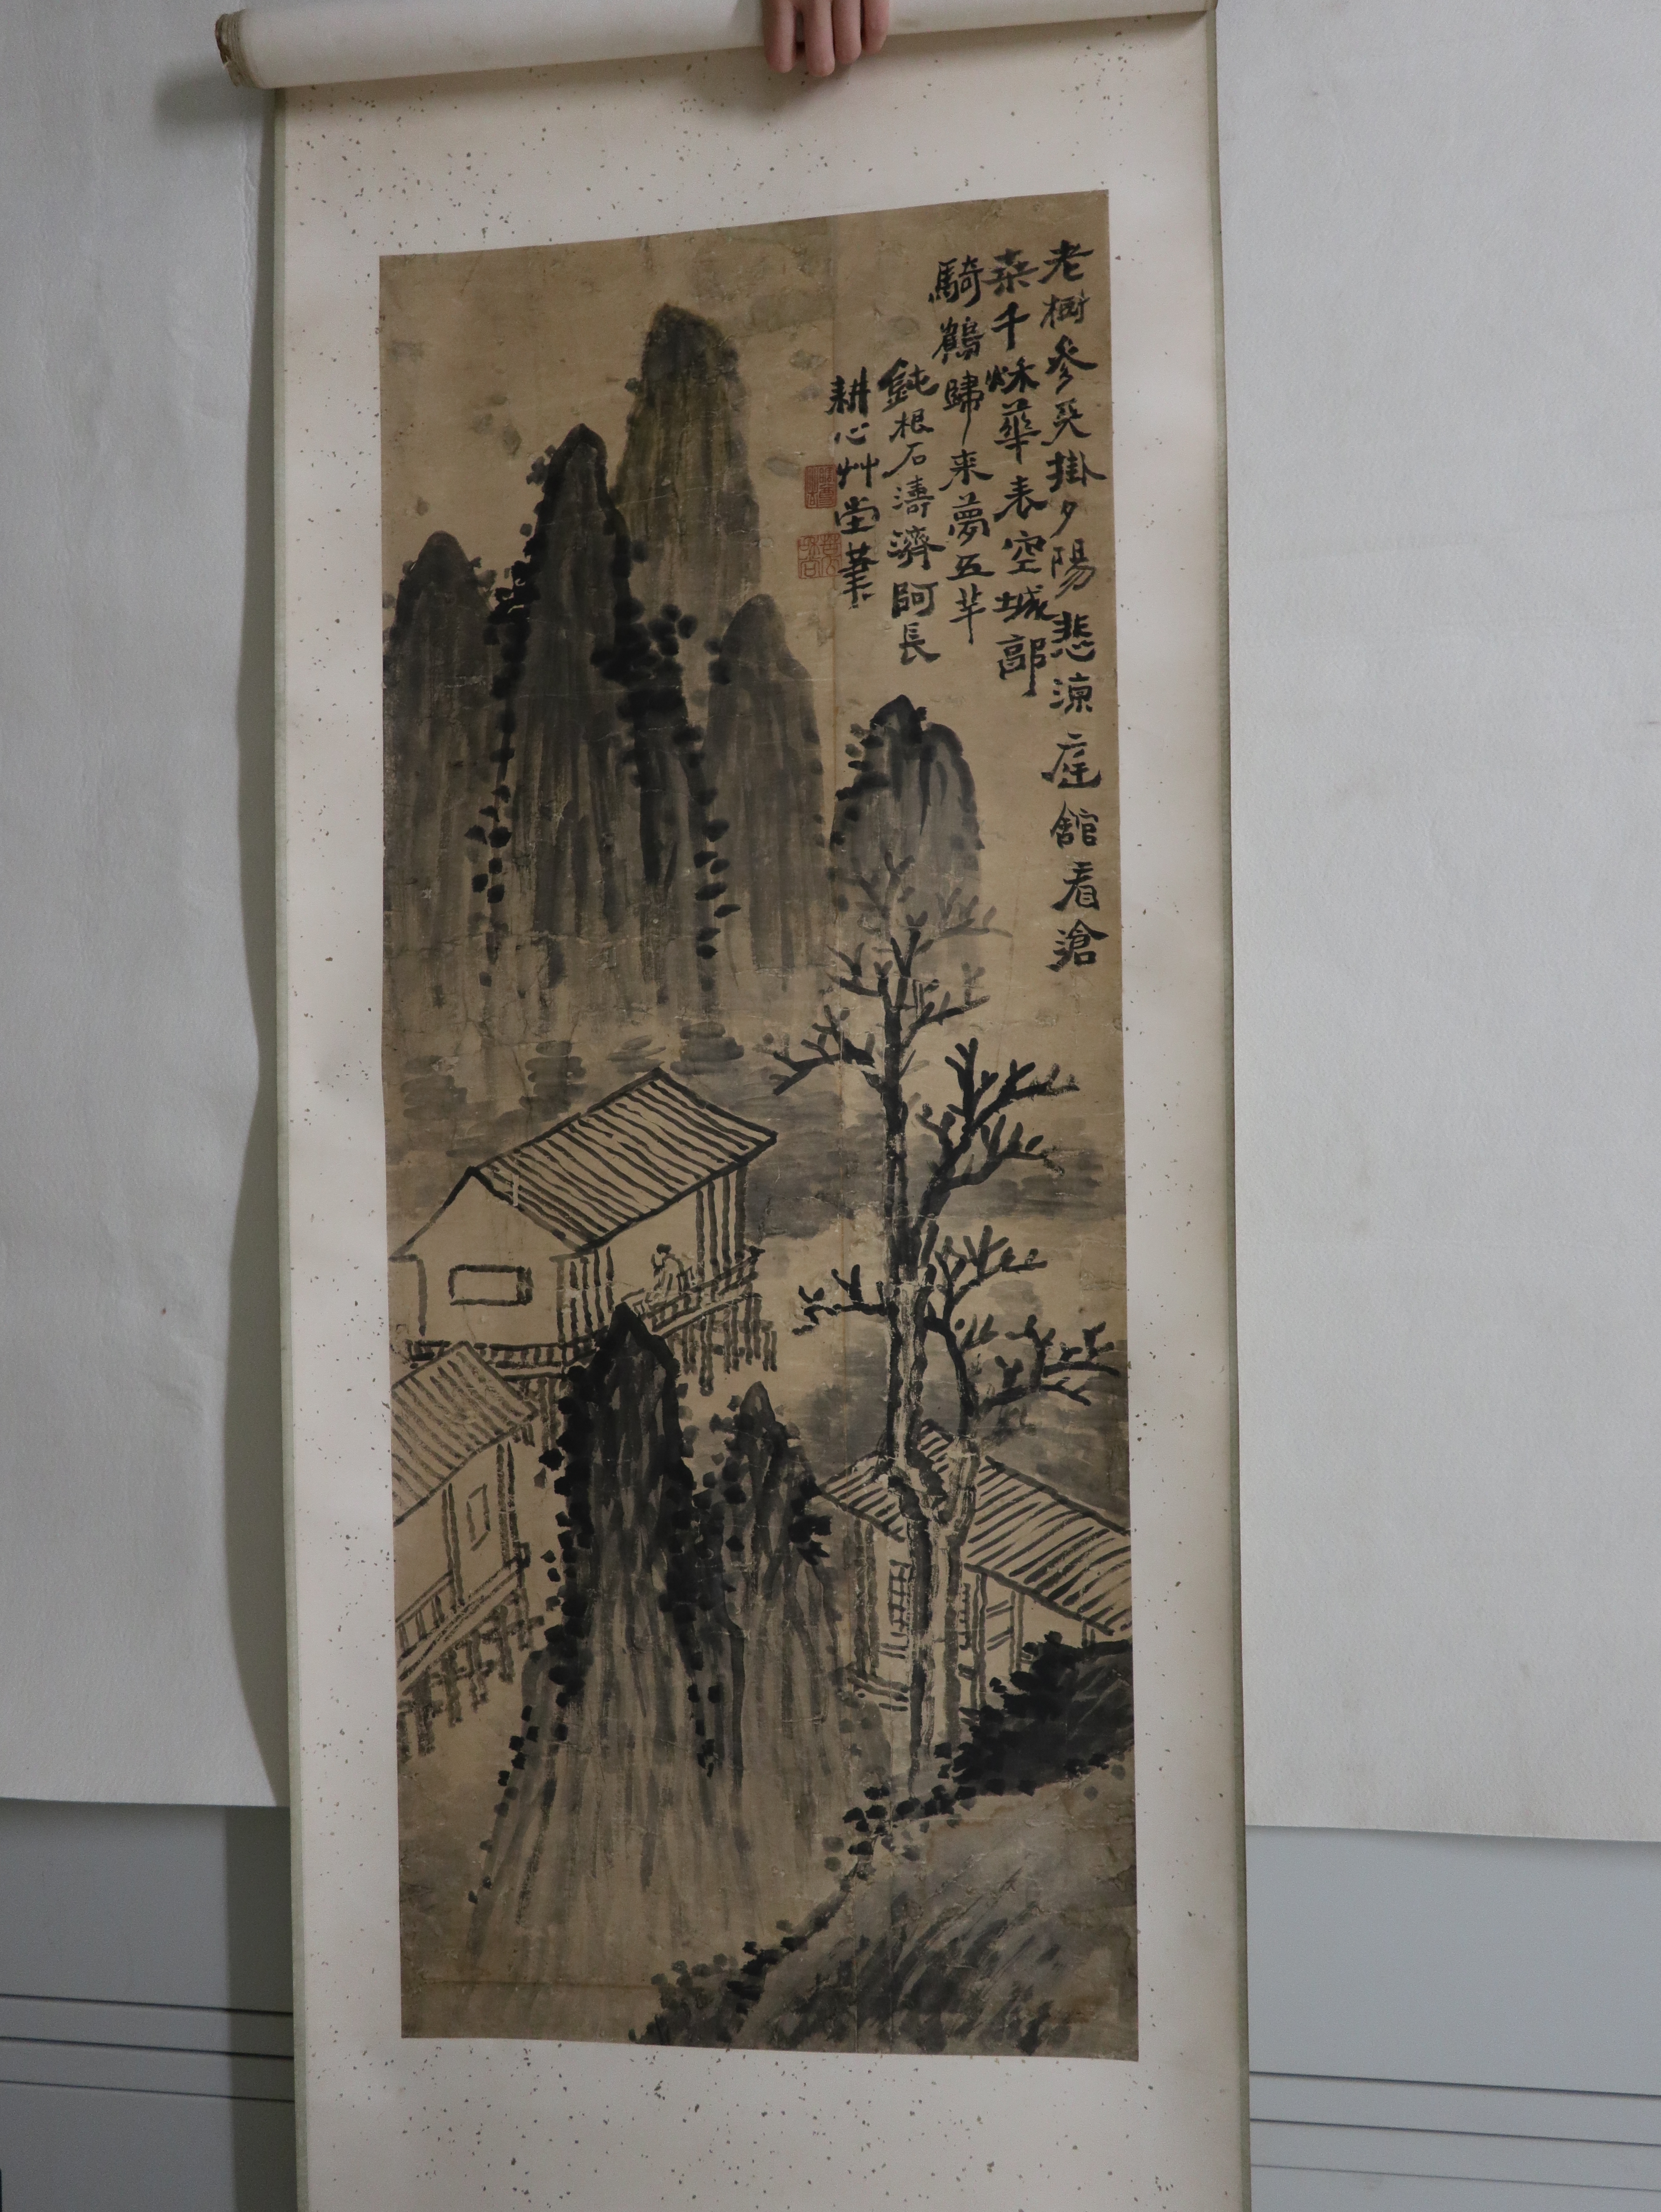 老樹參天掛夕陽悲涼庭館看滄
桒千秌華表空城郭
騎鶴歸来夢五羊
鈍根石濤濟阿長
耕心艸堂筆